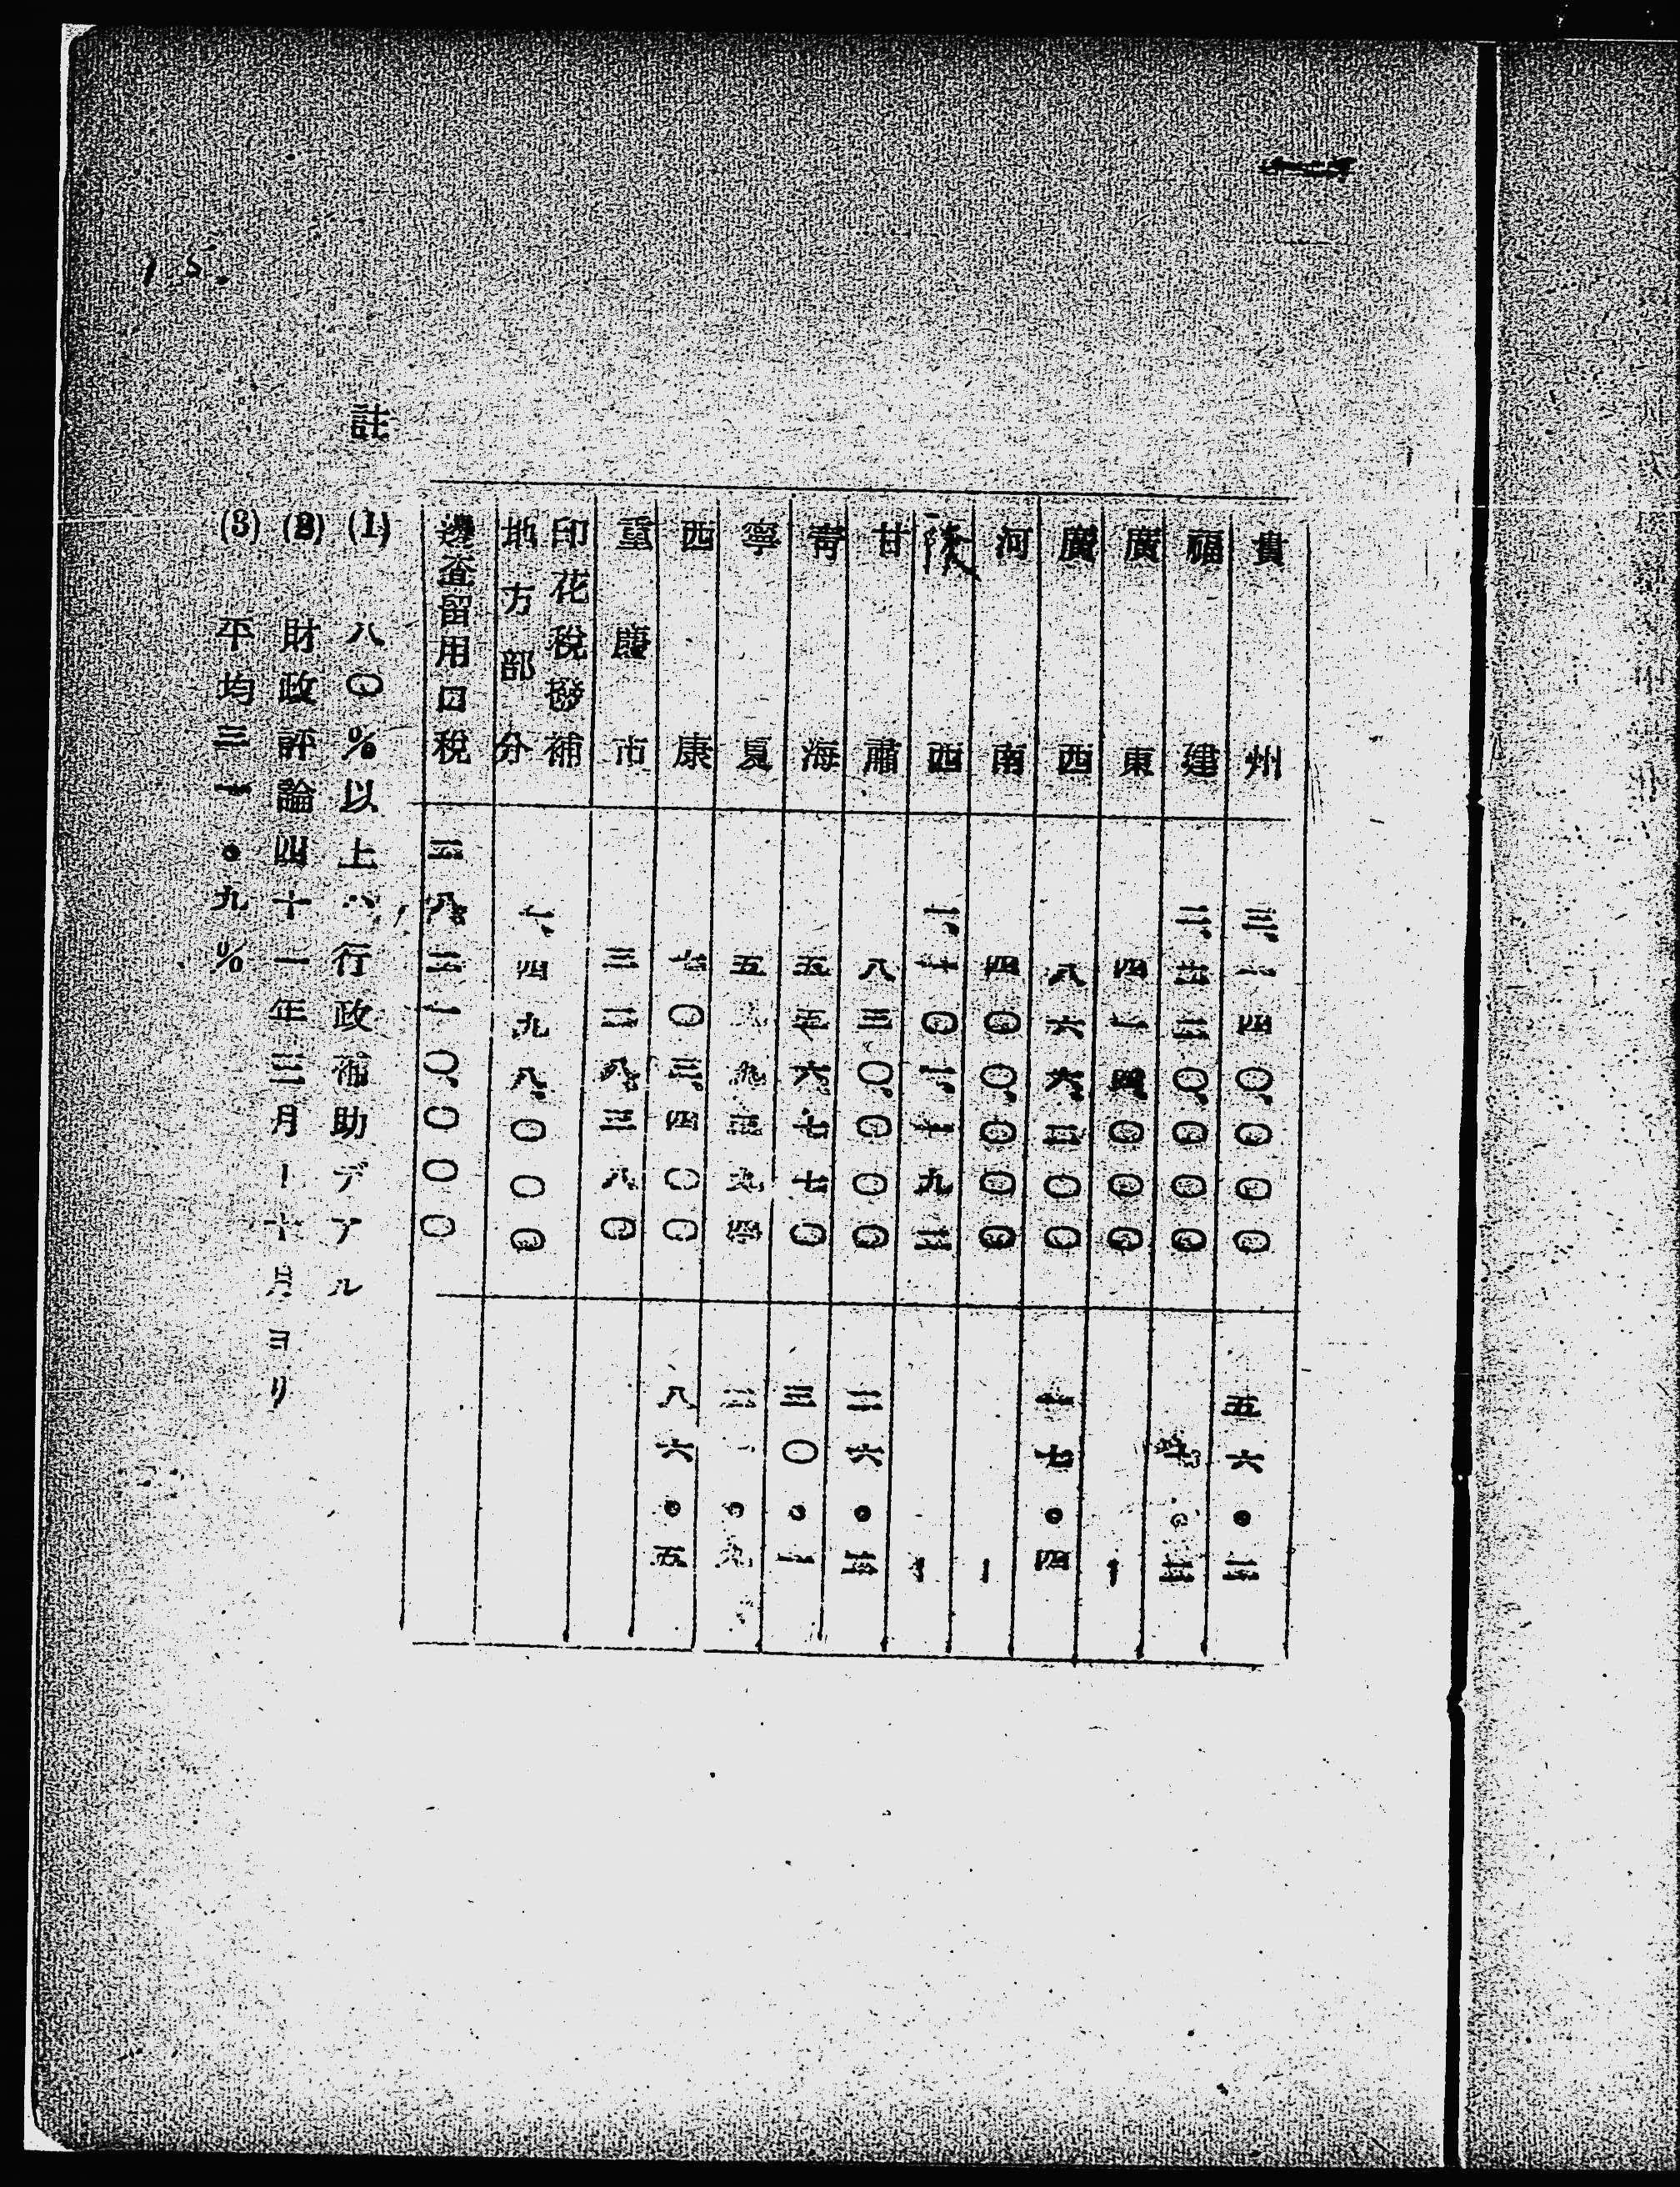 貴州 三,一四〇,〇〇〇 五六・三
福建 〇,〇〇〇
廣東 四一四,〇〇〇 ー
廣西 八六六,三〇〇 一七・四
河南 四〇〇,〇〇〇 ー
陝西 一,一〇 ー
甘肅 八三〇,〇〇〇 二六・三
青海 五五六,七七〇 三〇・一
寧夏 五
西康 七〇三,四〇〇 八六・五
重慶市 三二八,三八〇
印花稅撥補
地方部分 一,四九八,〇〇〇
留用口稅 二一〇,〇〇〇
註
(1) 八〇%以上ハ行政補助デアル
(2) 財政評論四十一年三月ー十月ヨリ
(3) 平均三一・九%
15.